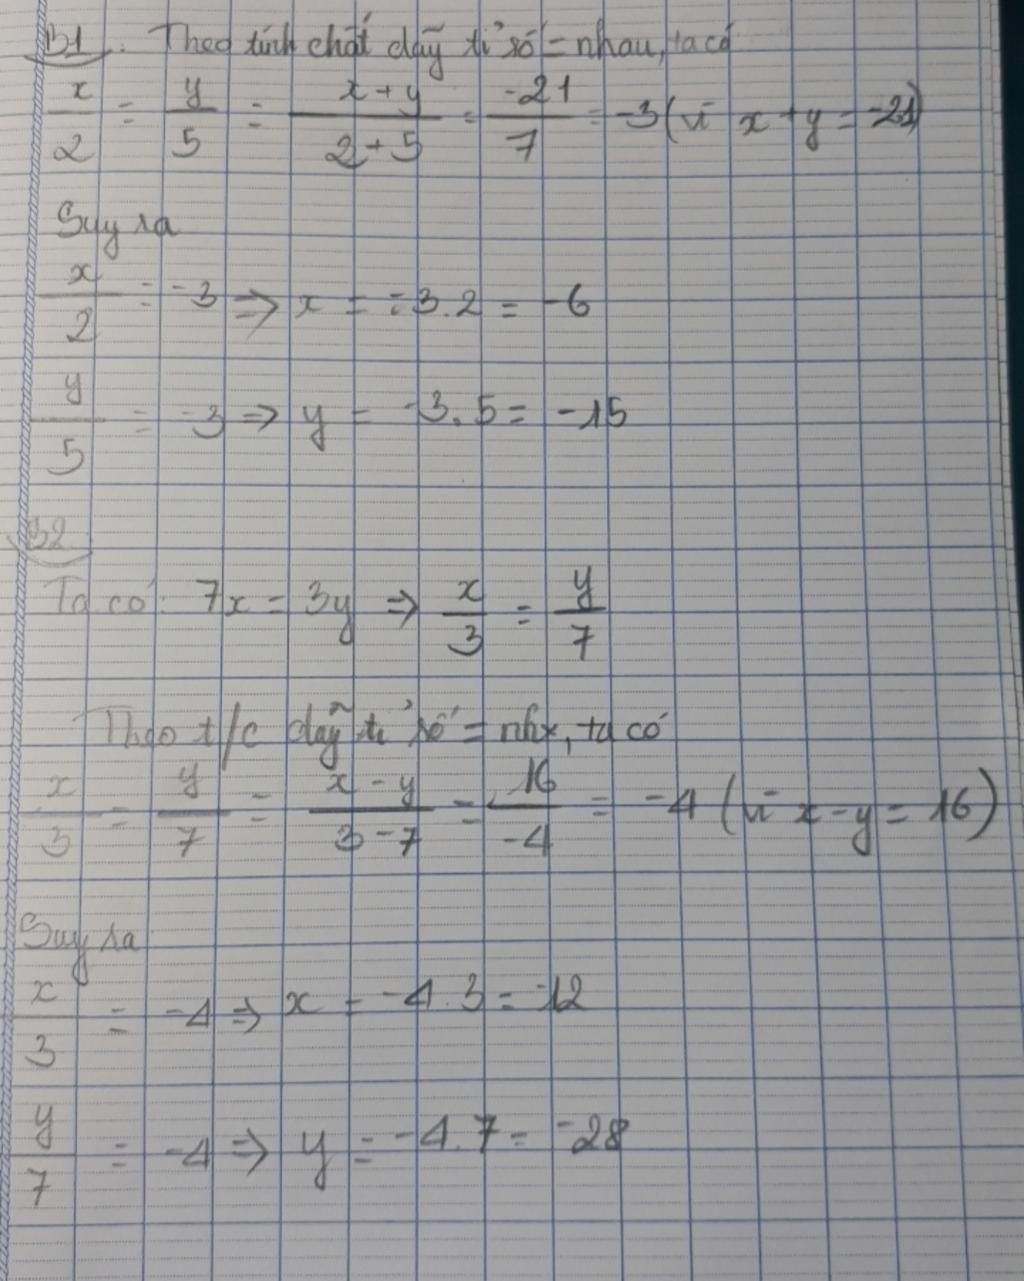 B1. Theo tính chất dãy tỉ số = nhau, ta có
x/2 = y/5 = (x+y)/(2+5) = -21/7 = -3 (vì x+y = -21)
Suy ra
x/2 = -3 => x = -3.2 = -6
y/5 = -3 => y = -3.5 = -15
B2
Ta có: 7x = 3y => x/3 = y/7
Theo t/c dãy tỉ số = nhx, ta có
x/3 = y/7 = (x-y)/(3-7) = 16/-4 = -4 (vì x-y = 16)
Suy ra
x/3 = -4 => x = -4.3 = -12
y/7 = -4 => y = -4.7 = -28